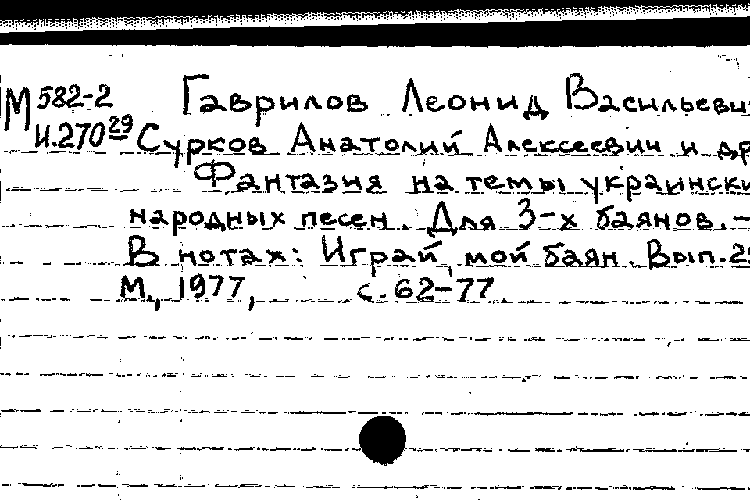 М 582-2 Гаврилов Леонид Васильеви
И.270 29 Сурков Анатолий Алексеевич и др
Фантазия на темы украински
народных песен. Для 3-х баянов. –
В нотах: Играй, мой баян. Вып. 2
М., 1977, с. 62–77.